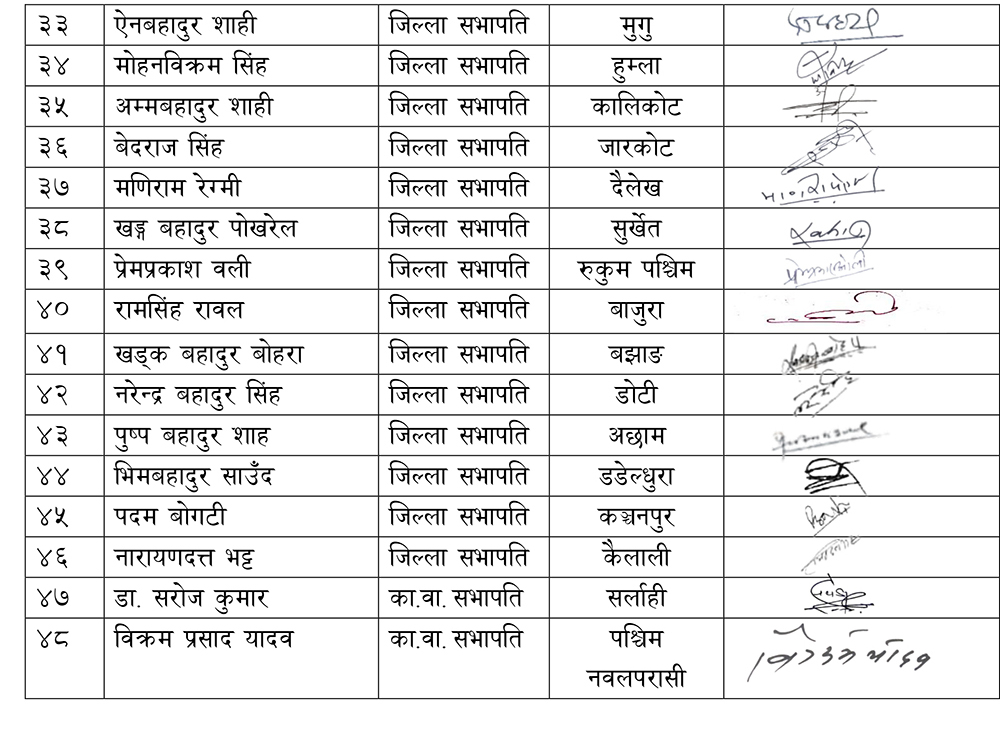 ३३ ऐनबहादुर शाही जिल्ला सभापति मुगु
३४ मोहनविक्रम सिंह जिल्ला सभापति हुम्ला
३५ अम्मबहादुर शाही जिल्ला सभापति कालिकोट
३६ बेदराज सिंह जिल्ला सभापति जारकोट
३७ मणिराम रेग्मी जिल्ला सभापति दैलेख
३८ खड्ग बहादुर पोखरेल जिल्ला सभापति सुर्खेत
३९ प्रेमप्रकाश वली जिल्ला सभापति रुकुम पश्चिम
४० रामसिंह रावल जिल्ला सभापति बाजुरा
४१ खड्क बहादुर बोहरा जिल्ला सभापति बझाङ
४२ नरेन्द्र बहादुर सिंह जिल्ला सभापति डोटी
४३ पुष्प बहादुर शाह जिल्ला सभापति अछाम
४४ भिमबहादुर साउँद जिल्ला सभापति डडेल्धुरा
४५ पदम बोगटी जिल्ला सभापति कञ्चनपुर
४६ नारायणदत्त भट्ट जिल्ला सभापति कैलाली
४७ डा. सरोज कुमार का.वा. सभापति सर्लाही
४८ विक्रम प्रसाद यादव का.वा. सभापति पश्चिम
नवलपरासी